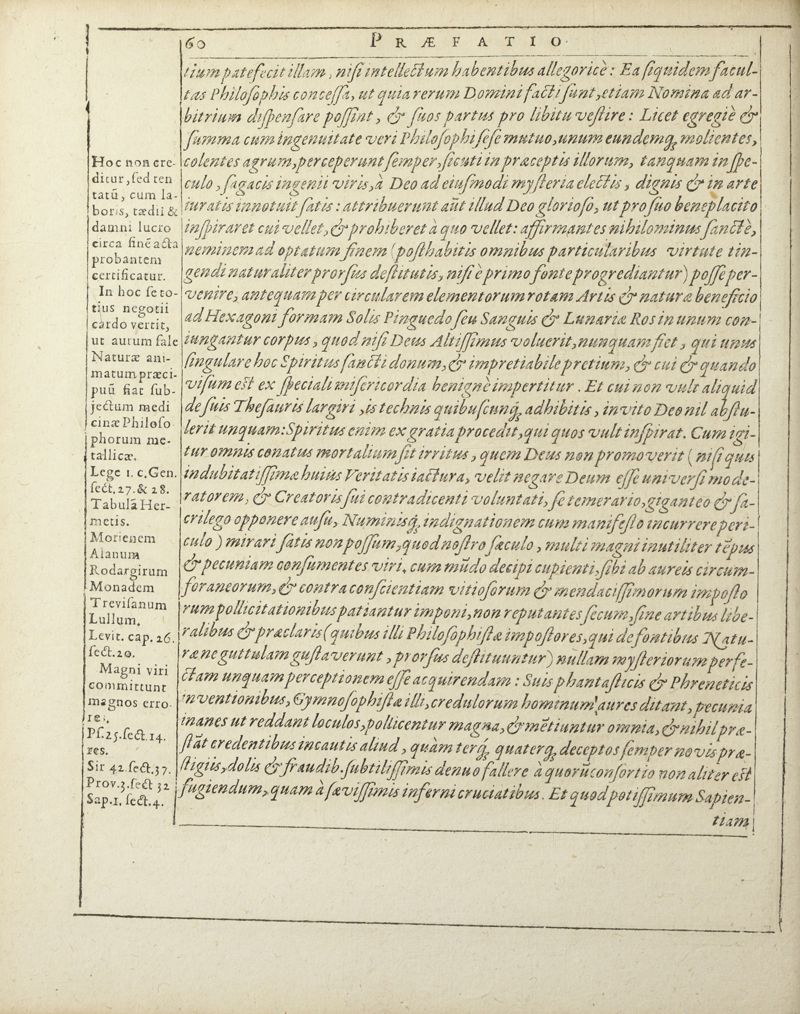 60 PRÆFATIO.
tium patefecit illam, nisi intellectum habentibus allegoricè: Ea siquidem facul-
tas Philosophis concessa, ut quia rerum Domini facti sunt, etiam Nomina ad ar-
bitrium dispensare possint, & suos partus pro libitu vestire: Licet egregiè &
summa cum ingenuitate veri Philosophi sese mutuo, unum eundemq; molientes,
colentes agrum, perceperunt semper, sicuti in præceptis illorum, tanquam in spe-
culo, sagacis ingenii viris, à Deo ad eiusmodi mysteria electis, dignis & in arte
iuratis innotuit satis: attribuerunt aut illud Deo glorioso, ut pro suo beneplacito
inspiraret cui vellet, & prohiberet à quo vellet: affirmantes nihilominus sanctè,
neminem ad optatum finem (posthabitis omnibus particularibus virtute tin-
gendi naturaliter prorsus destitutis, nisi è primo fonte progrediantur) posse per-
venire, antequam per circularem elementorum rotam Artis & naturæ beneficio
ad Hexagoni formam Solis Pinguedo seu Sanguis & Lunariæ Ros in unum con-
iungantur corpus, quod nisi Deus Altissimus voluerit, nunquam fiet, qui unus
singulare hoc Spiritus sancti donum, & impretiabile pretium, & cui & quando
visum est ex speciali misericordia benignè impertitur. Et cui non vult aliquid
de suis Thesauris largiri, is technis quibuscunq; adhibitis, invito Deo nil abstu-
lerit unquam: Spiritus enim ex gratia procedit, qui quos vult inspirat. Cum igi-
tur omnis conatus mortalium sit irritus, quem Deus non promoverit (nisi quis
indubitatissimæ huius Veritatis iactura, velit negare Deum esse universi mode-
ratorem, & Creatoris sui contradicenti voluntati, se temerario, giganteo & sa-
crilego opponere ausu, Numinisq; indignationem cum manifesto incurrere peri-
culo) mirari satis non possum, quod nostro sæculo, multi magni inutiliter tēpus
& pecuniam consumentes viri, cum mūdo decipi cupienti, sibi ab aureis circum-
foraneorum, & contra conscientiam vitiosorum & mendacissimorum imposto
rum pollicitationibus patiantur imponi, non reputantes secum, sine artibus libe-
ralibus & præclaris (quibus illi Philosophistæ impostores, qui de fontibus Natu-
ræ ne guttulam gustaverunt, prorsus destituuntur) nullam mysteriorum perfe-
ctam unquam perceptionem esse acquirendam: Suis phantasticis & Phreneticis
inventionibus, Gymnosophistæ illi, credulorum hominum aures ditant, pecunia
inanes ut reddant loculos, pollicentur magna, & mētiuntur omnia, & nihil præ-
stāt credentibus incautis aliud, quàm terq; quaterq; deceptos semper novis præ-
stigiis, dolis & fraudib. subtilissimis denuo fallere à quorū consortio non aliter est
fugiendum, quam à sævissimis inferni cruciatibus. Et quod potissimum Sapien-
tiam
Hoc non cre-
ditur, sed ten
tatū, cum la-
boris, tædii &
damni lucro
circa finē acta
probantem
certificatur.
In hoc se to-
tius negotii
cardo vertit,
ut aurum sale
Naturæ ani-
matum præci-
puū fiat sub-
jectum medi
cinæ Philoso
phorum me-
tallicæ.
Lege 1. c. Gen.
sect. 27. & 28.
Tabulā Her-
metis.
Morienem
Alanum
Rodargirum
Monadem
Trevisanum
Lullum.
Levit. cap. 26.
sect. 20.
Magni viri
committunt
magnos erro-
res.
Ps. 25. sect. 14.
res.
Sir 42. sect. 37.
Prov. 3. sect 32
Sap. 1. sect. 4.